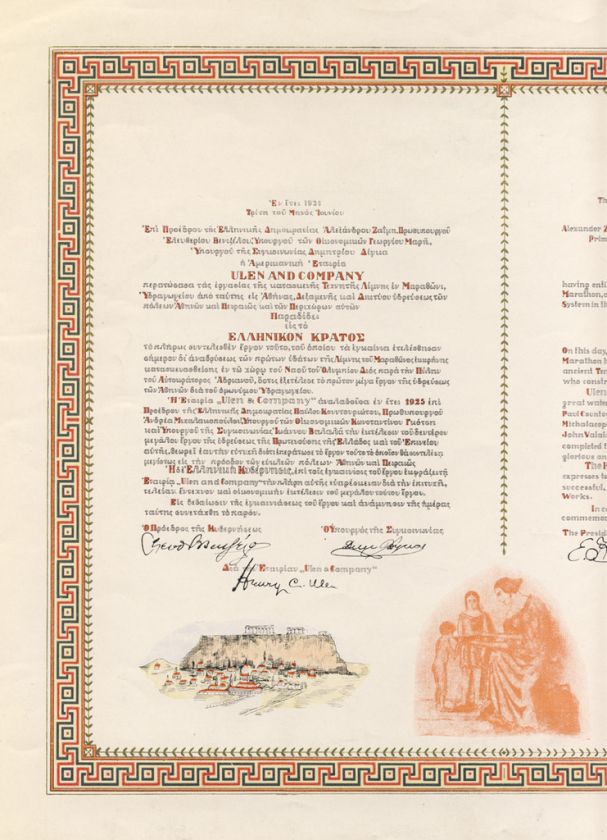 Ἐν ἔτει 1931
Τρίτη τοῦ Μηνός Ἰουνίου
Ἐπί Προέδρου τῆς Ἑλληνικῆς Δημοκρατίας Ἀλεξάνδρου Ζαΐμη, Πρωθυπουργοῦ
Ἐλευθερίου Βενιζέλου, Ὑπουργοῦ τῶν Οἰκονομικῶν Γεωργίου Μαρῆ,
Ὑπουργοῦ τῆς Συγκοινωνίας Δημητρίου Δίγκα
ἡ Ἀμερικανική Ἑταιρία
ULEN AND COMPANY
περατώσασα τάς ἐργασίας τῆς κατασκευῆς Τεχνητῆς Λίμνης ἐν Μαραθῶνι,
Ὑδραγωγείου ἀπό ταύτης εἰς Ἀθήνας, Δεξαμενῆς καί Δικτύου ὑδρεύσεως τῶν
πόλεων Ἀθηνῶν καί Πειραιῶς καί τῶν Περιχώρων αὐτῶν
Παραδίδει
εἰς τό
ΕΛΛΗΝΙΚΟΝ ΚΡΑΤΟΣ
τό πλήρως συντελεσθέν ἔργον τοῦτο, τοῦ ὁποίου τά ἐγκαίνια ἐτελέσθησαν
σήμερον δι' ἀναβρύσεως τῶν πρώτων ὑδάτων τῆς Λίμνης τοῦ Μαραθῶνος ἐκ κρήνης
κατασκευασθείσης ἐν τῷ χώρῳ τοῦ Ναοῦ τοῦ Ὀλυμπίου Διός παρά τήν Πύλην
τοῦ Αὐτοκράτορος Ἀδριανοῦ, ὅστις ἐξετέλεσε τό πρῶτον μέγα ἔργον τῆς ὑδρεύσεως
τῶν Ἀθηνῶν διά τοῦ ὁμωνύμου Ὑδραγωγείου.
Ἡ Ἑταιρία „Ulen & Company" ἀναλαβοῦσα ἐν ἔτει 1925 ἐπί
Προέδρου τῆς Ἑλληνικῆς Δημοκρατίας Παύλου Κουντουριώτου, Πρωθυπουργοῦ
Ἀνδρέα Μιχαλακοπούλου, Ὑπουργοῦ τῶν Οἰκονομικῶν Κωνσταντίνου Γκότση
καί Ὑπουργοῦ τῆς Συγκοινωνίας Ἰωάννου Βαλαλᾶ τήν ἐκτέλεσιν τοῦ δευτέρου
μεγάλου ἔργου τῆς ὑδρεύσεως τῆς Πρωτευούσης τῆς Ἑλλάδος καί τοῦ Ἐπινείου
αὐτῆς, θεωρεῖ ἑαυτήν εὐτυχῆ διότι ἐπεράτωσε τό ἔργον τοῦτο τό ὁποῖον θά συντελέσῃ
μεγίστως εἰς τήν πρόοδον τῶν εὐκλεῶν πόλεων Ἀθηνῶν καί Πειραιῶς
Ἡ δέ Ἑλληνική Κυβέρνησις, ἐπί τοῖς ἐγκαινίοις τοῦ ἔργου ἐκφράζει τῇ
Ἑταιρίᾳ „Ulen and Company" τήν πλήρη αὐτῆς εὐαρέσκειαν διά τήν ἐπιτυχῆ,
τελείαν, ἔντεχνον καί οἰκονομικήν ἐκτέλεσιν τοῦ μεγάλου τούτου ἔργου.
Εἰς βεβαίωσιν τῆς ἐγκαινιάσεως τοῦ ἔργου καί ἀνάμνησιν τῆς ἡμέρας
ταύτης συνετάχθη τό παρόν.
Ὁ Πρόεδρος τῆς Κυβερνήσεως Ὁ Ὑπουργός τῆς Συγκοινωνίας
Διά τήν Ἑταιρίαν „Ulen & Company"
Henry C. Ulen
Th
Alexander Z
Prim
having enti
Marathon, a
System in th
On this day,
Marathon L
ancient Tem
who constr
Ulen
great water
Paul Counto
Michalacop
John Valala
completed t
glorious an
The H
expresses to
successful,
Works.
In c
commemor
The Presid